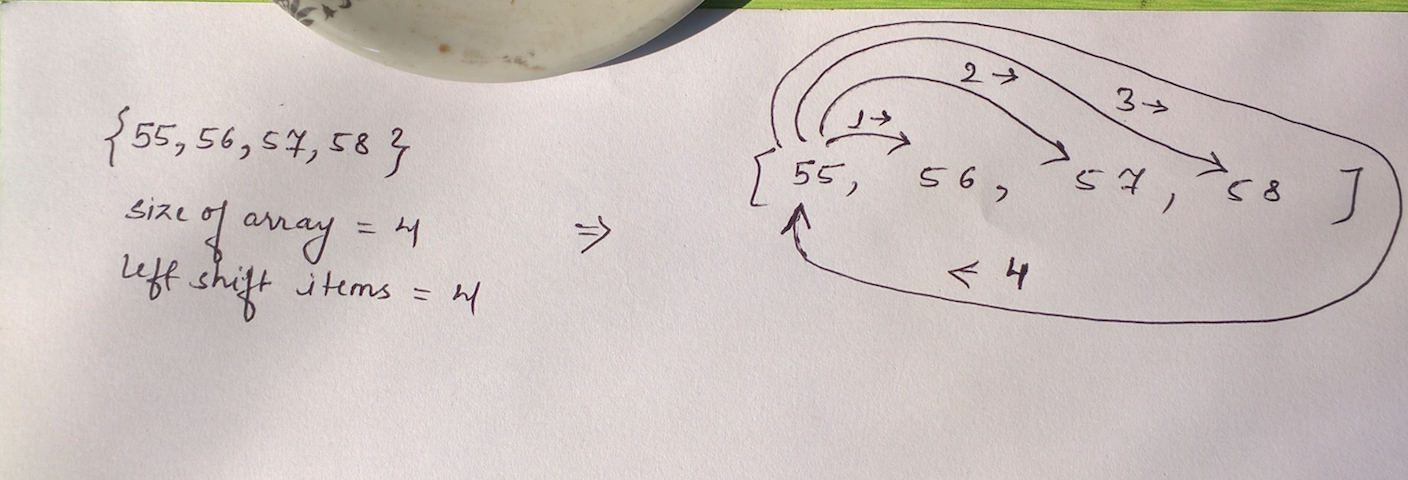 {55, 56, 57, 58}
size of array = 4
left shift items = 4
⇒
1→
2→
3→
[55, 56, 57, 58]
< 4